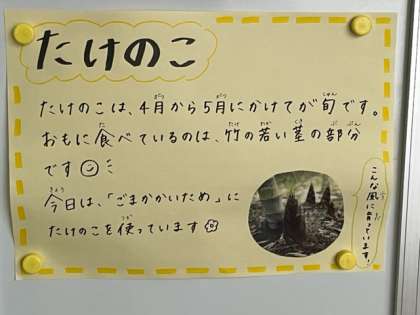 たけのこ
たけのこは、4月から5月にかけてが旬です。
おもに食べているのは、竹の若い茎の部分
です
今日は、「ごまかかいため」に
たけのこを使っています
こんな風に育っています！